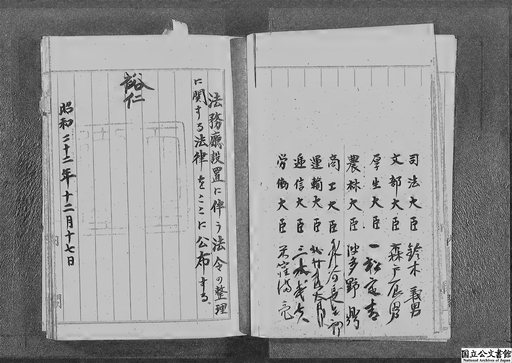 司法大臣 鈴木義男
文部大臣 森戸辰男
厚生大臣 一松定吉
農林大臣 波多野鼎
商工大臣 水谷長三郎
運輸大臣 北村徳太郎
逓信大臣 三木武夫
労働大臣 米窪満亮
法務廳設置に伴う法令の整理
に関する法律をここに公布する。
裕仁
昭和二十二年十二月十七日
国立公文書館
National Archives of Japan